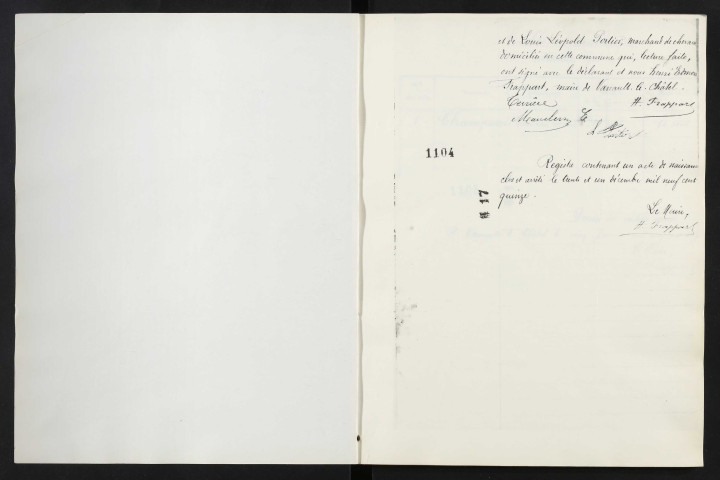 et de Louis Léopold Portier, marchand de chevaux
domiciliés en cette commune qui, lecture faite,
ont signé avec le déclarant et nous Henri
Frappart, maire de Vanault-le-Châtel.
H. Frappart
1104
Registre contenant un acte de naissance
clos et arrêté le trente et un décembre mil neuf cent
quinze.
# 17
Le Maire,
H. Frappart